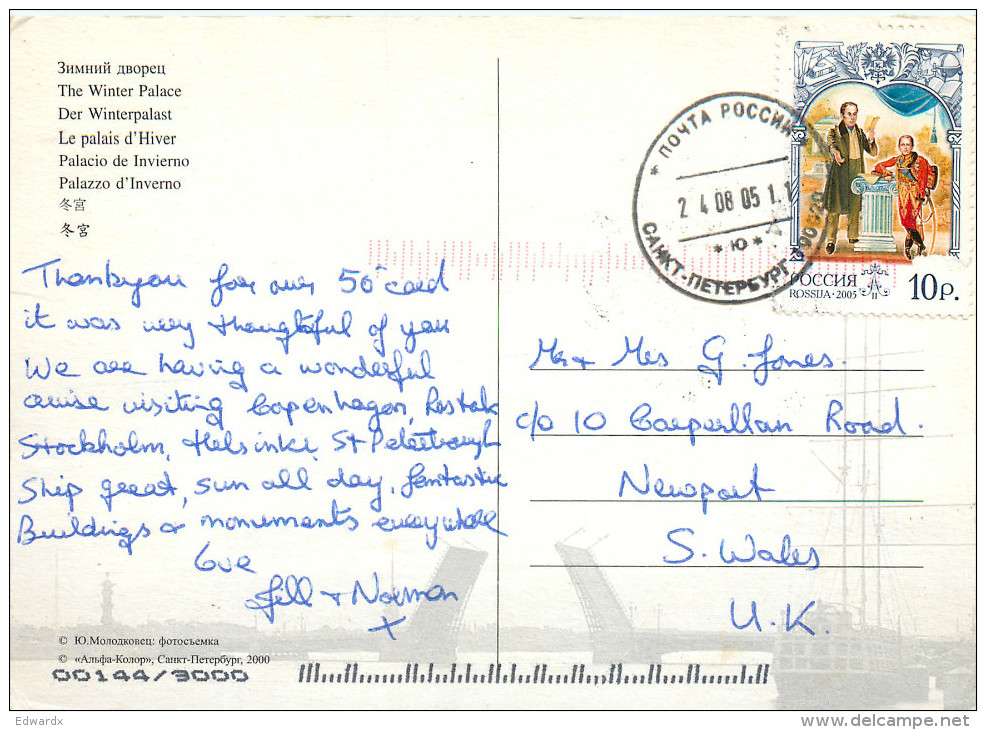 Зимний дворец
The Winter Palace
Der Winterpalast
Le palais d'Hiver
Palacio de Invierno
Palazzo d'Inverno
冬宮
冬宮
ПОЧТА РОССИИ
24 08 05 1.1
* Ю *
САНКТ-ПЕТЕРБУРГ 190
РОССИЯ
ROSSIJA · 2005
10 р.
Thankyou for our 50° card
it was very thoughtful of you
We are having a wonderful
cruise visiting Copenhagen, Rostok
Stockholm, Helsinki, St Peterbrough
Ship great, sun all day, fantastic
Buildings & monuments everywhere
love
Jill + Norman
X
Mr + Mrs G. Jones.
c/o 10 Caeperllan Road.
Newport
S. Wales
U.K.
© Ю.Молодковец: фотосъемка
© «Альфа-Колор», Санкт-Петербург, 2000
00144/3000
Edwardx
delcampe.net